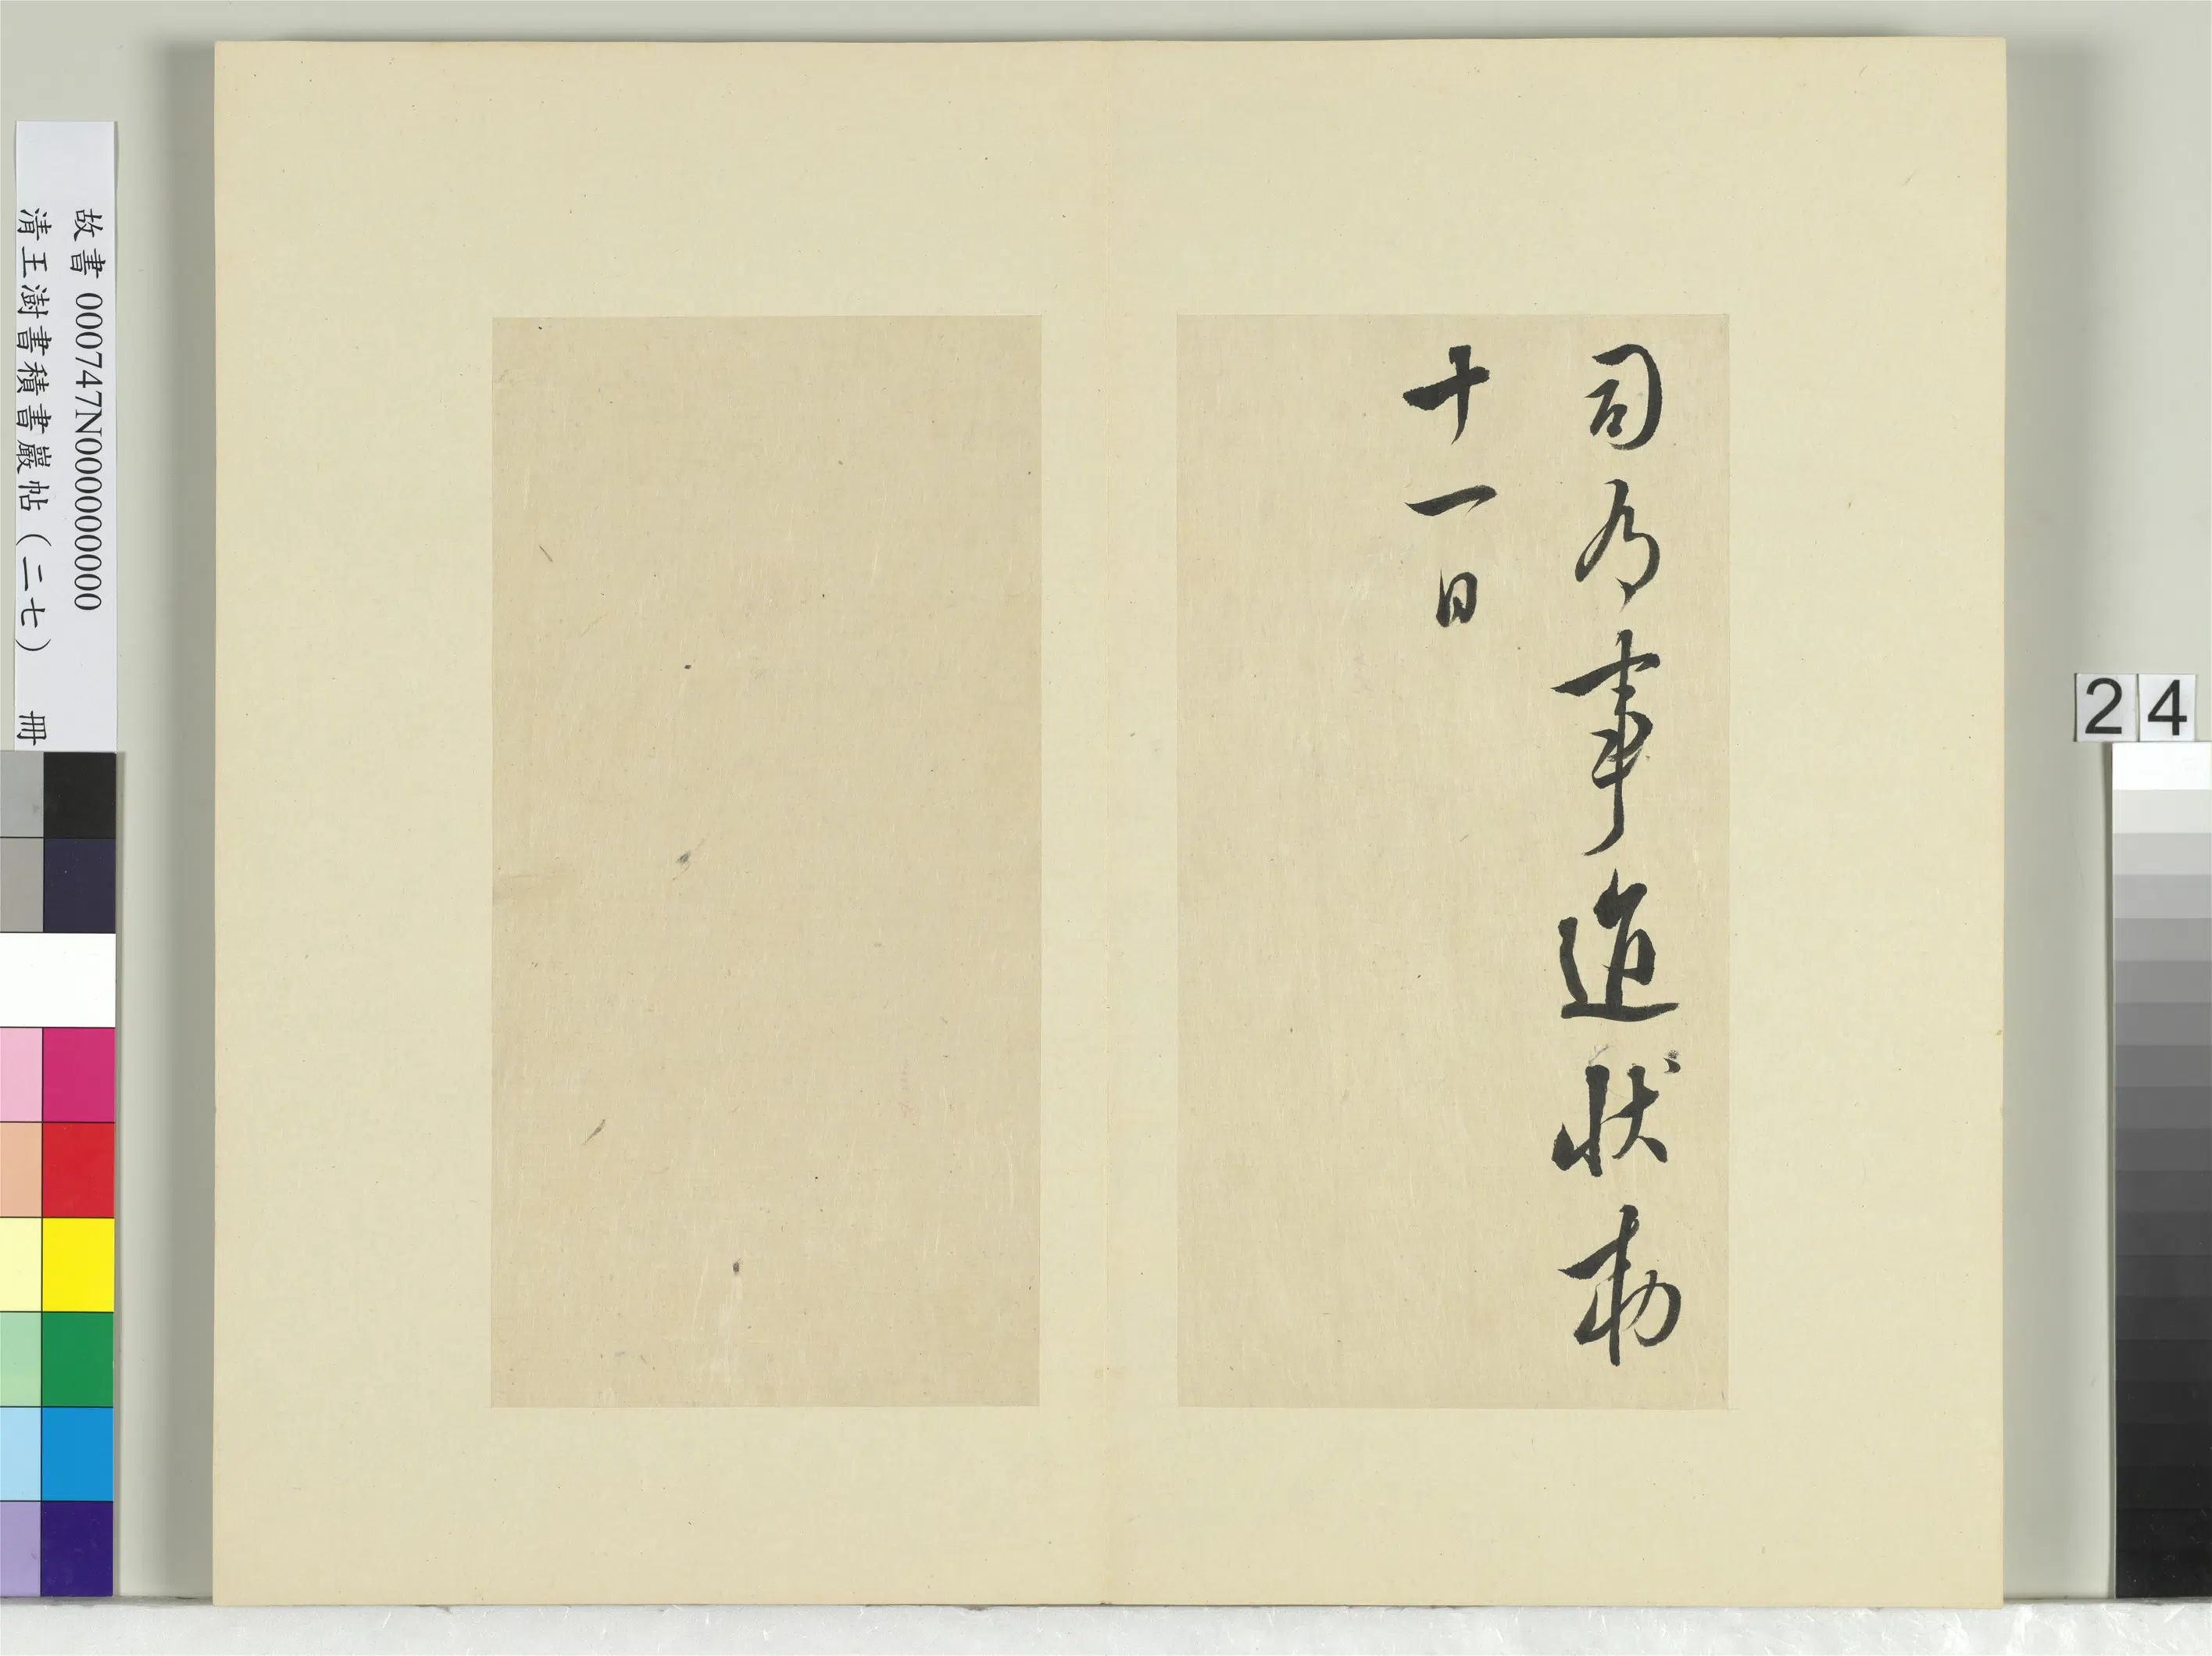 司為事追狀勅
十一日
故書 000747N000000000
清王澍書積書巖帖（二七） 冊
24